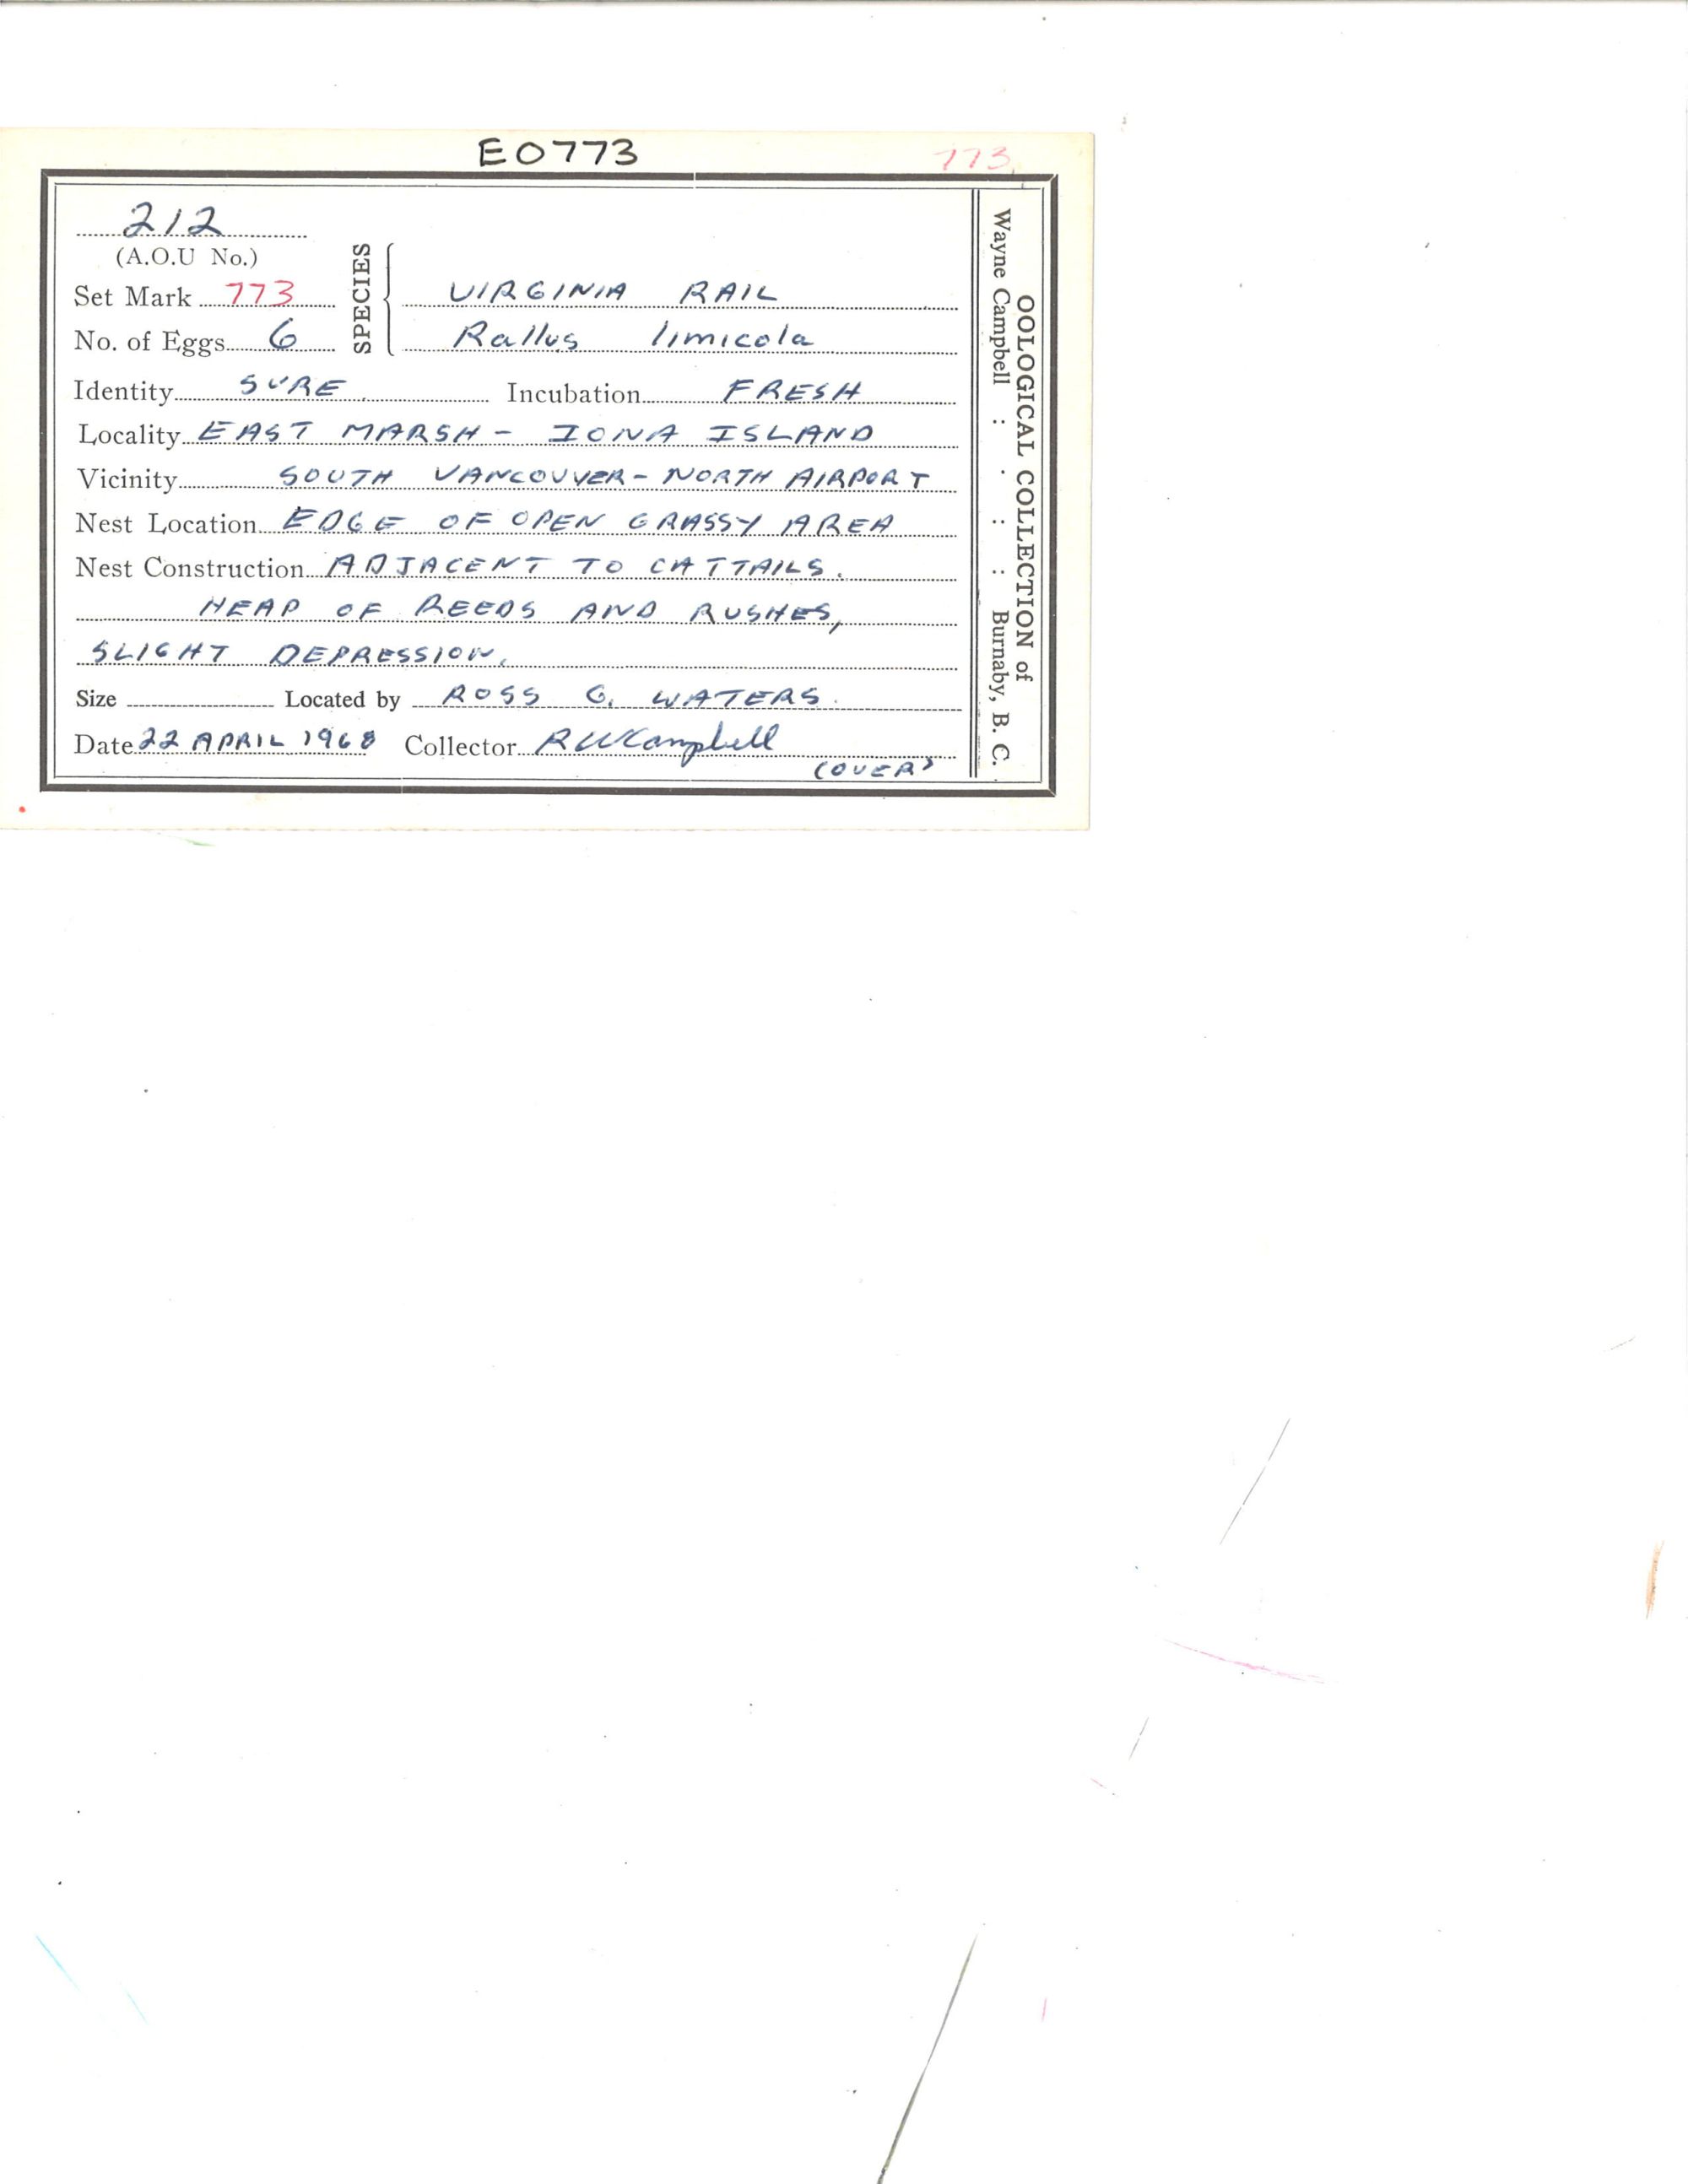 E0773
773
212
(A.O.U No.)
SPECIES
Set Mark 773
VIRGINIA RAIL
No. of Eggs 6
Rallus limicola
Identity SURE Incubation FRESH
Locality EAST MARSH - IONA ISLAND
Vicinity SOUTH VANCOUVER - NORTH AIRPORT
Nest Location EDGE OF OPEN GRASSY AREA
Nest Construction ADJACENT TO CATTAILS.
HEAP OF REEDS AND RUSHES,
SLIGHT DEPRESSION.
Size Located by ROSS G. WATERS.
Date 22 APRIL 1968 Collector RWCampbell
(OVER)
OOLOGICAL COLLECTION of
Wayne Campbell : : : : Burnaby, B. C.